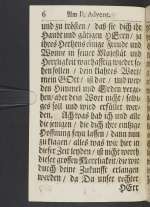 6 Am II. Advent.
und zu trösten / daß sie dich ihr
Haupt und gütigen HErrn / zu
ihres Herzens einige Freude und
Wonne in seiner Majestät und
Herrligkeit warhafftig wieder se-
hen sollen / den sichers Wort /
mein GOtt / ist da / und we-
den Himmel und Erden verge-
hen / aber dein Wort nicht / selbi-
ges soll und wird erfüllet wer-
den. Ach was hab ich und alle
die jenigen / die dich ihre einzige
Hoffnung seyn lassen / dann nun
zu klagen / alles was wir hie in
dieser Zeit leyden / ist nicht werth
dieser grossen Herrligkeit / die wir
durch deine Zukunfft erlangen
werden / da Du unser rechter
HErr